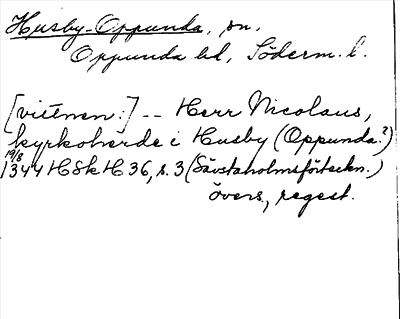 Husby-Oppunda, sn.
Oppunda hd, Söderm. l.
[vittnen:] -- Herr Nicolaus,
kyrkoherde i Husby (Oppunda?)
19/8
1344 HSkH 36, s. 3 (Sävstaholmsförteckn.)
övers., regest.